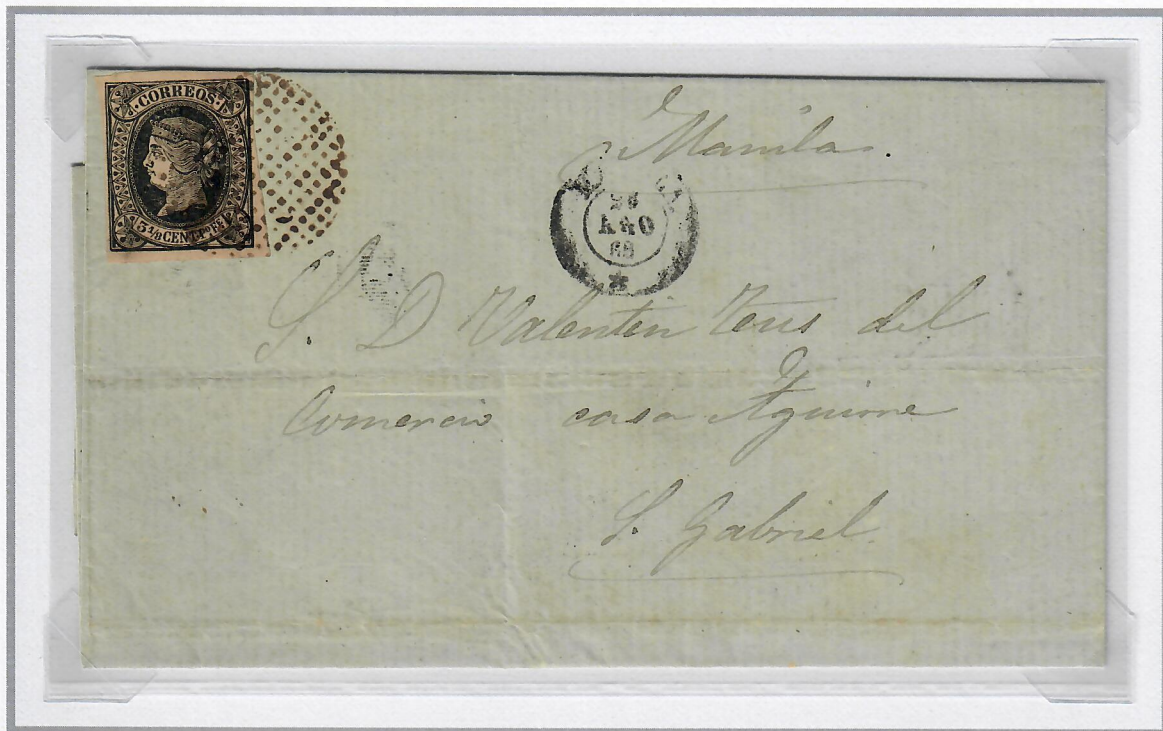 CORREOS
3 1/8 CENT. Po. FE
Manila
26
AGO
68
S. D Valentin Teus del
Comercio casa Aguirre
S. Gabriel